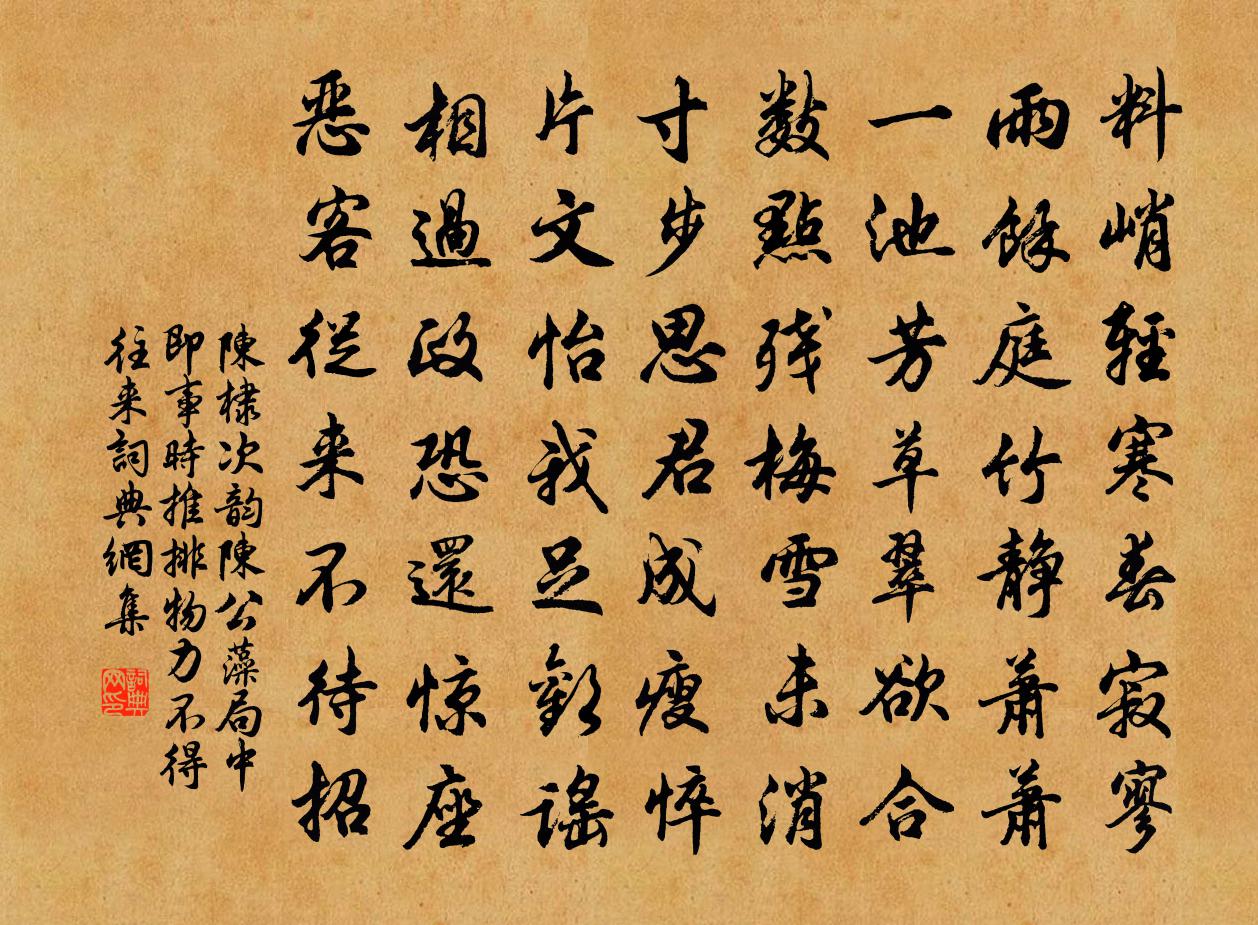 料峭輕寒春寂寥
雨餘庭竹静蕭蕭
一池芳草翠欲合
数點残梅雪未消
寸步思君成瘦悴
片文怡我足歡謡
相過政恐還惊座
恶客從来不待招
陳棣次韵陳公藻局中
即事時推排物力不得
往来詞典網集
詞典网印